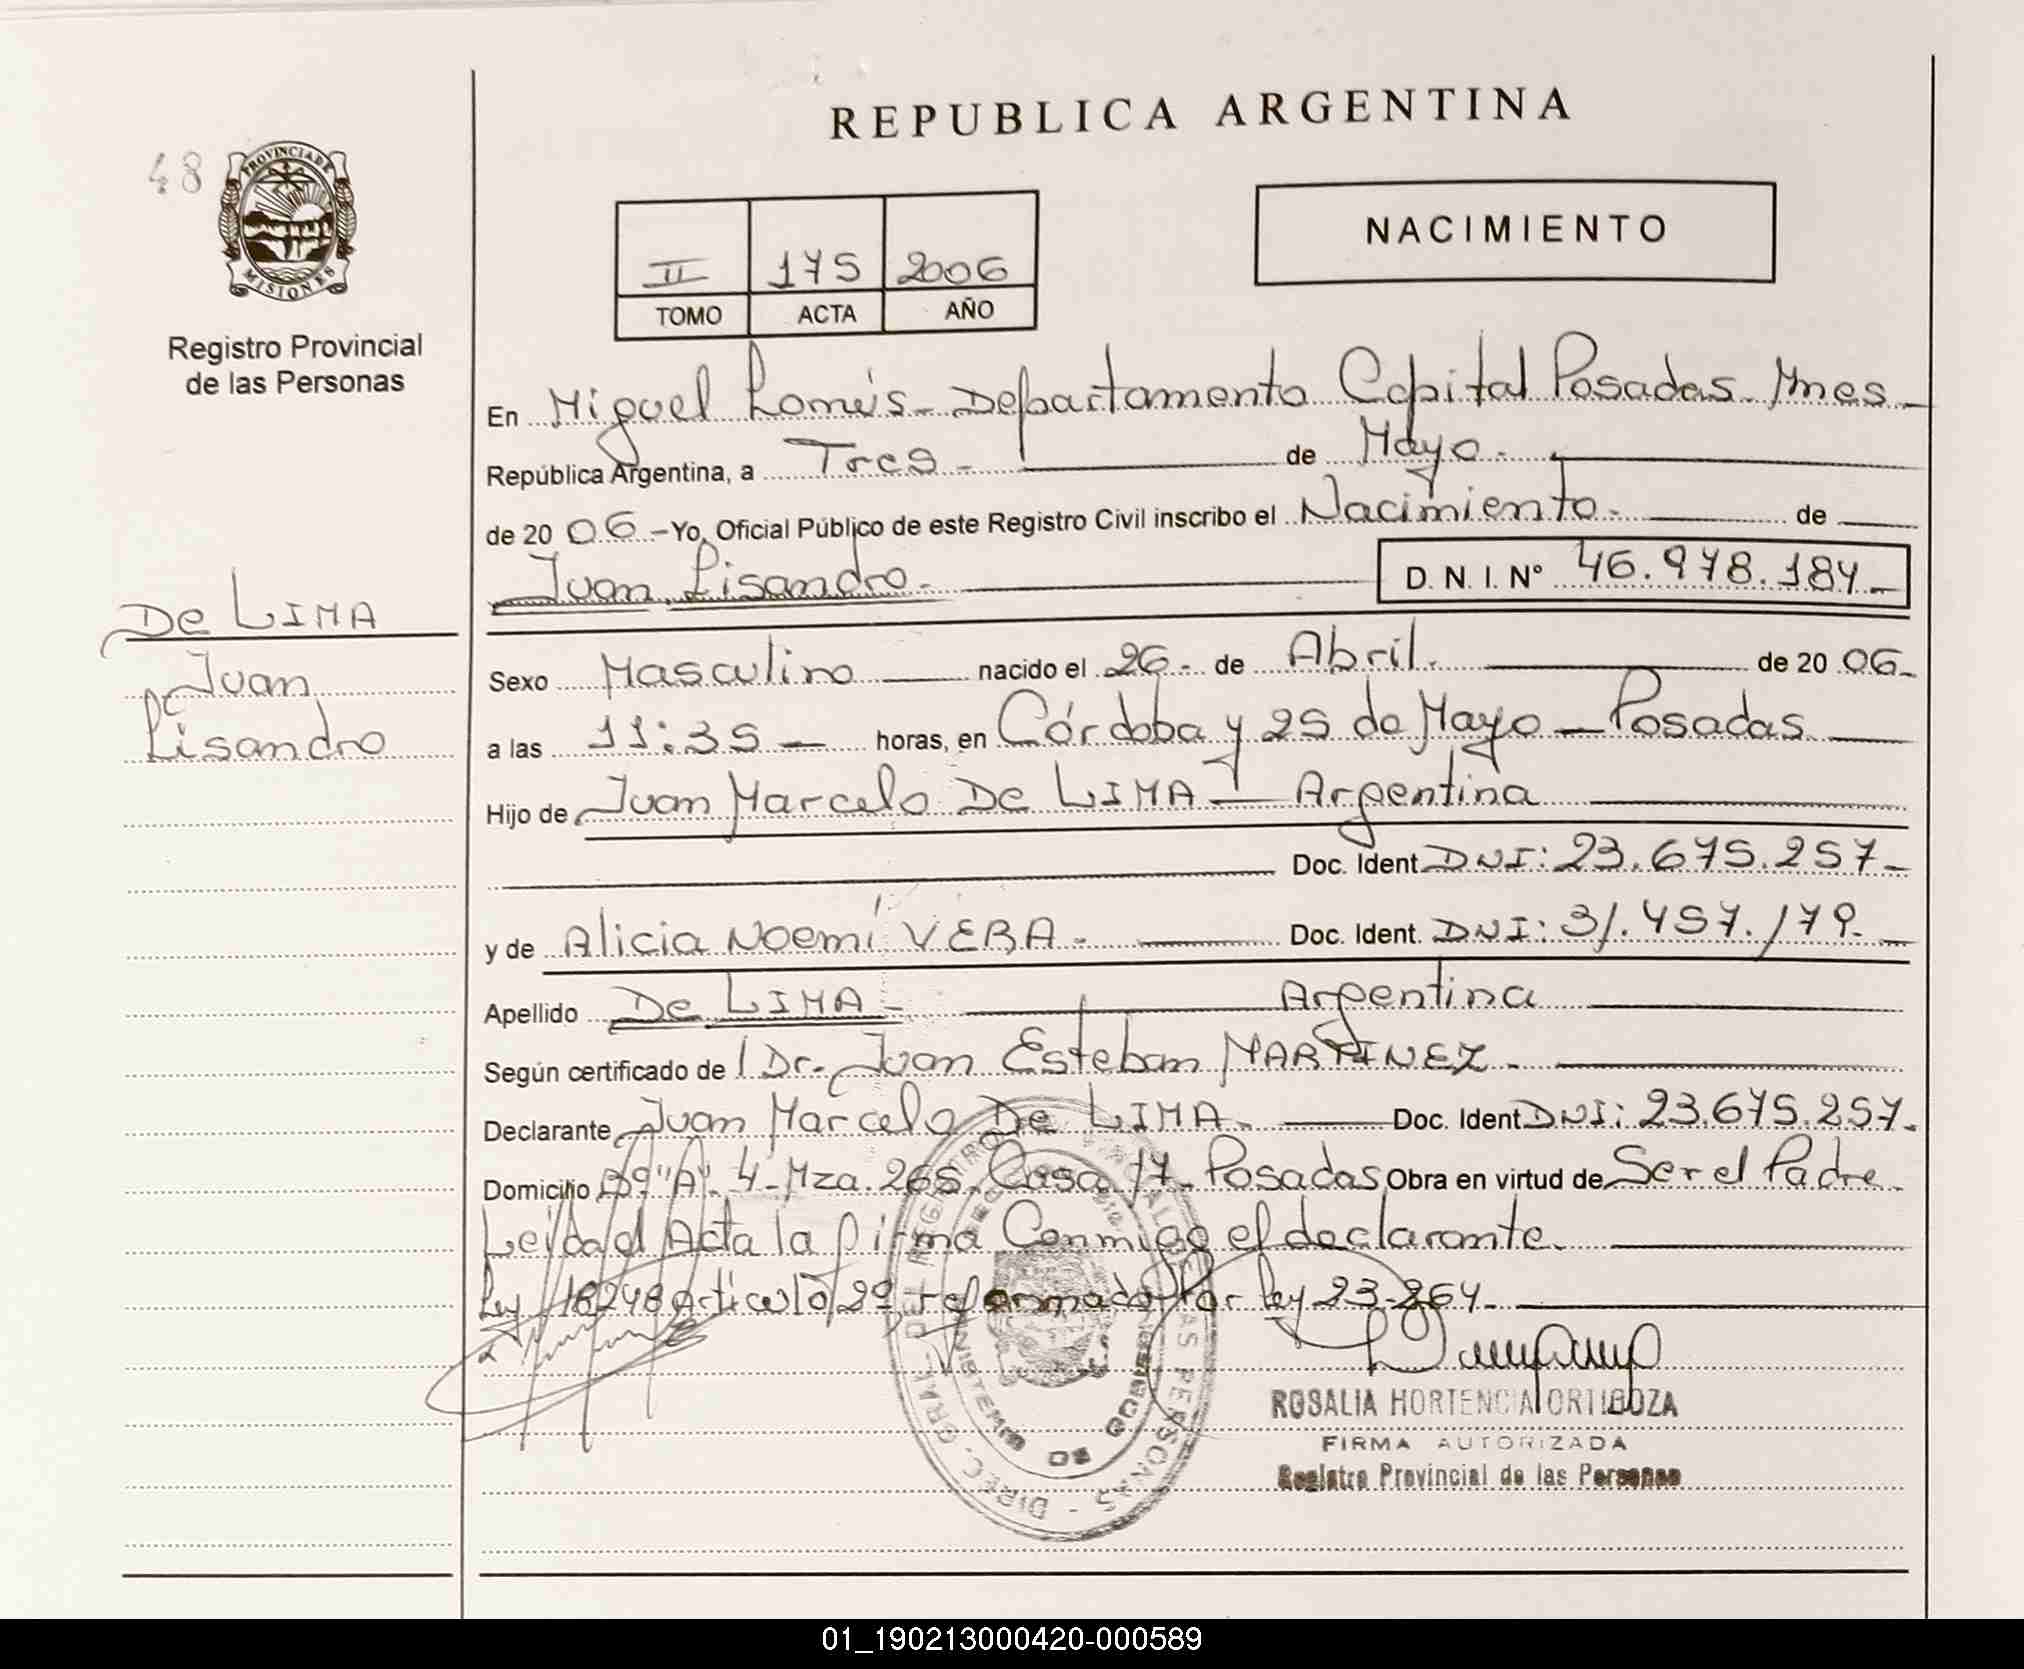 REPUBLICA ARGENTINA
48
PROVINCIA DE
MISIONES
Registro Provincial
de las Personas
II 175 2006
TOMO ACTA AÑO
NACIMIENTO
En Miguel Lanús - Departamento Capital Posadas - Mnes -
República Argentina, a Tres - de Mayo -
de 20 06 - Yo, Oficial Público de este Registro Civil inscribo el Nacimiento - de
Juan Lisandro - D. N. I. Nº 46.978.184 -
De LIMA
Juan
Lisandro
Sexo Masculino nacido el 26 - de Abril. de 20 06 -
a las 11:35 horas, en Córdoba y 25 de Mayo - Posadas
Hijo de Juan Marcelo De LIMA - Argentina
Doc. Ident. DNI: 23.675.257 -
y de Alicia Noemí VERA - Doc. Ident. DNI: 31.457.179 -
Apellido De LIMA - Argentina
Según certificado de Dr. Juan Esteban MARTINEZ -
Declarante Juan Marcelo De LIMA. Doc. Ident DNI: 23.675.257.
Domicilio "A". 4 - Mza. 265. Casa 17 - Posadas Obra en virtud de Ser el Padre
Leída el Acta la firma Conmigo el declarante.
Ley 18248 Articulo 2º, reformado por ley 23.264 -
ROSALIA HORTENCIA
FIRMA AUTORIZADA
Registro Provincial de las Personas
01_190213000420-000589